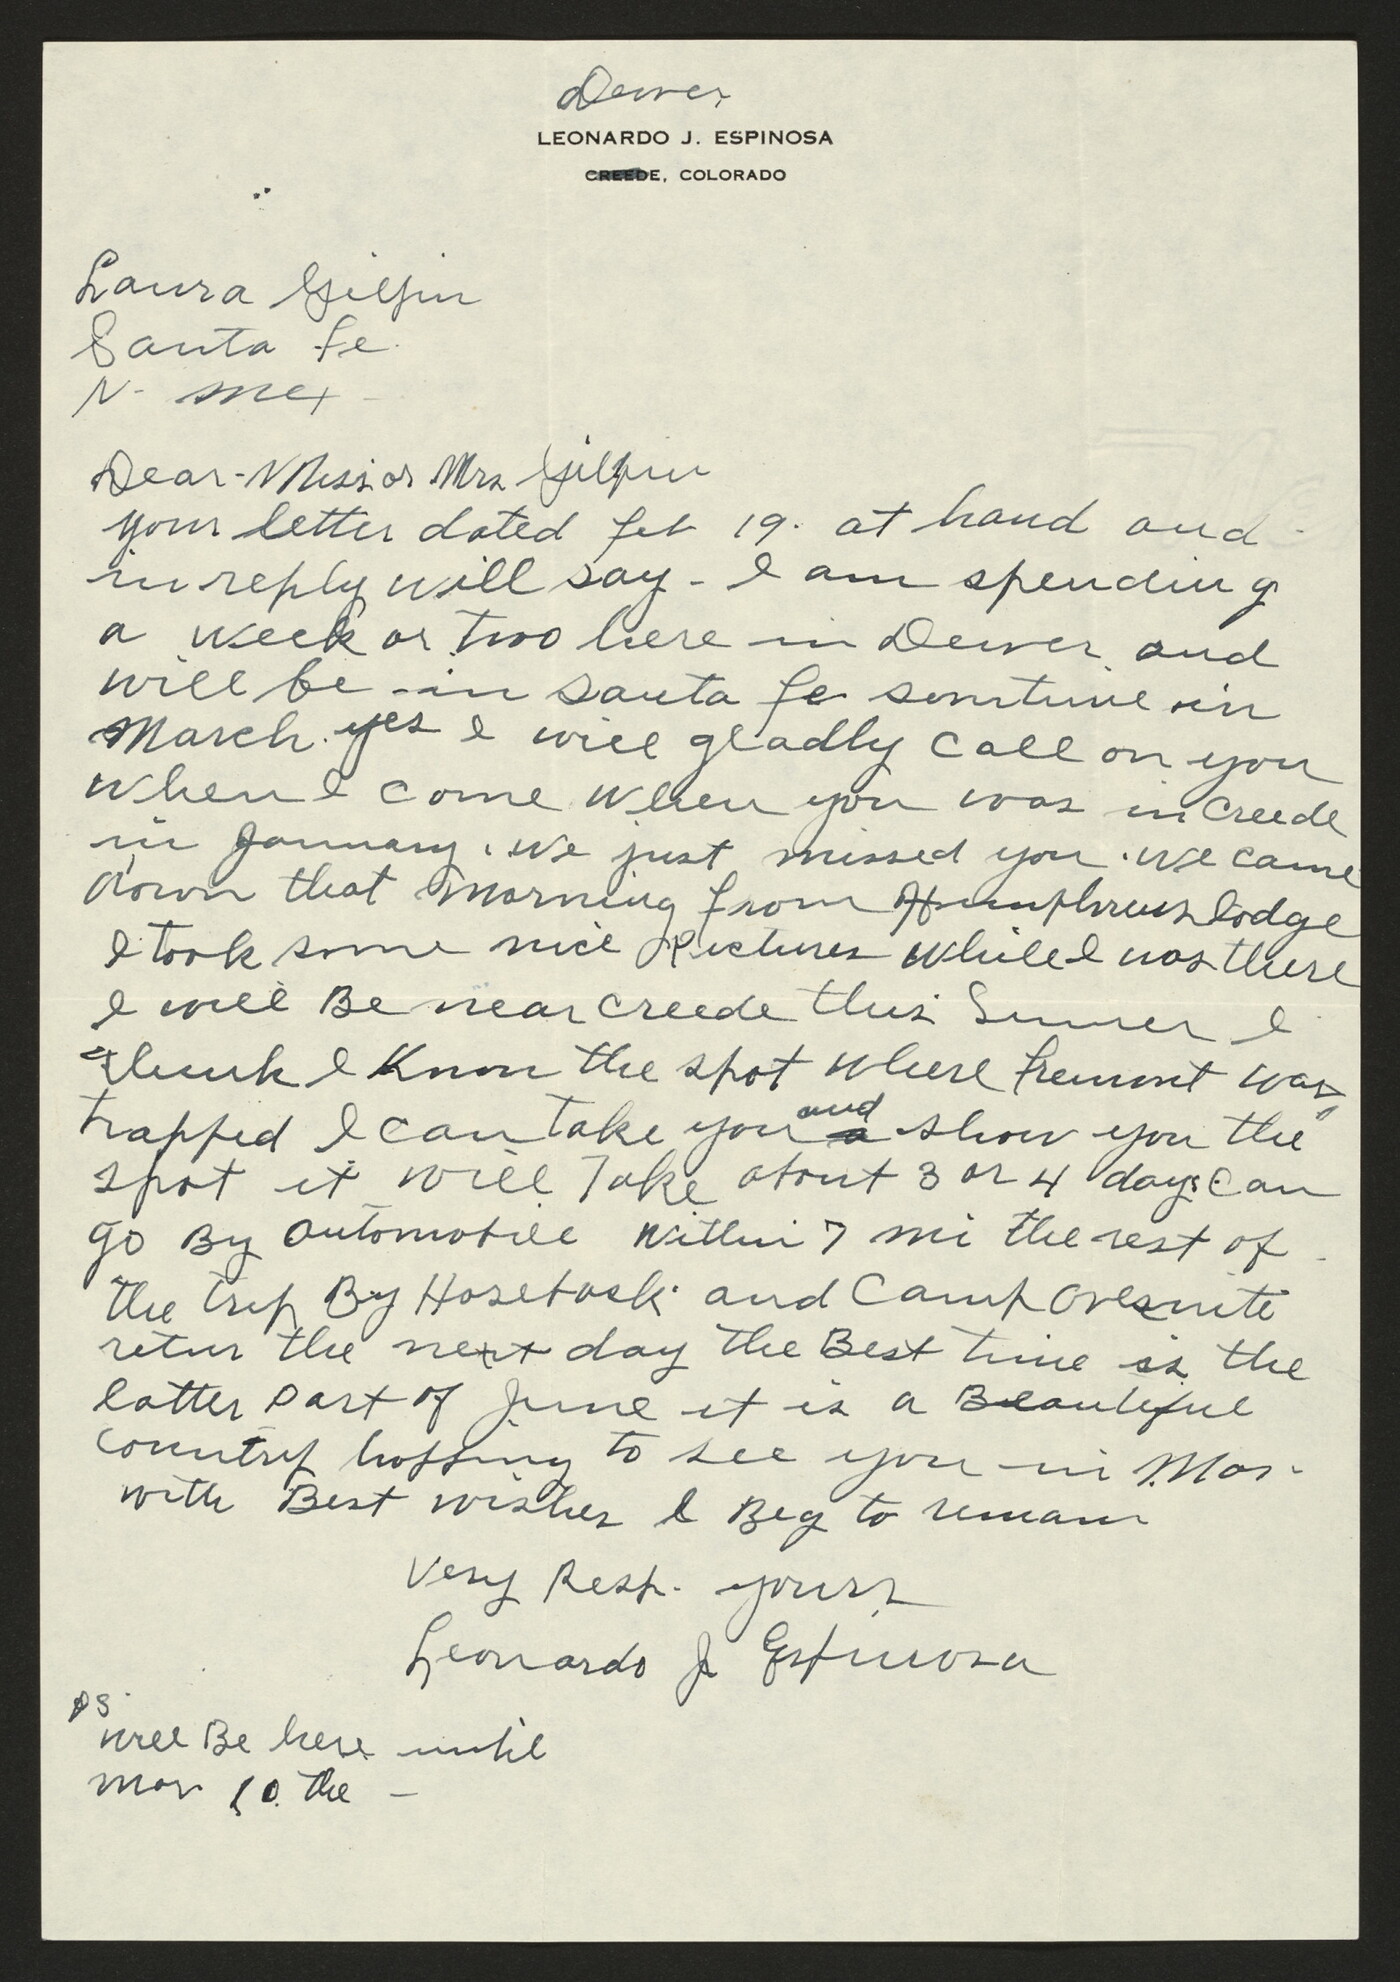 Denver
LEONARDO J. ESPINOSA
CREEDE, COLORADO
Laura Gilpin
Santa Fe.
N. Mex
Dear Miss or Mrs Gilpin
your letter dated Feb 19. at hand and
in reply will say - I am spending
a week or two here in Denver and
will be in Santa Fe somtime in
March. yes I will gladly call on you
when I come when you was in Creede
in January. we just missed you. we came
down that morning from Humphreys lodge
I took some nice Pictures while I was there
I will Be near Creede this Sumer I
think I Know the spot where Fremont was
trapped I can take you and show you the
spot it will Take about 3 or 4 days. Can
go By automobile within 7 mi the rest of
the trip By Horseback and Camp overnite
retur the next day the Best time is the
latter part of June it is a Beautiful
country hopping to see you in Mar.
with Best wishes I Beg to remain
Very Resp. yours
Leonardo J Espinosa
PS
will Be here until
Mar 10. the -